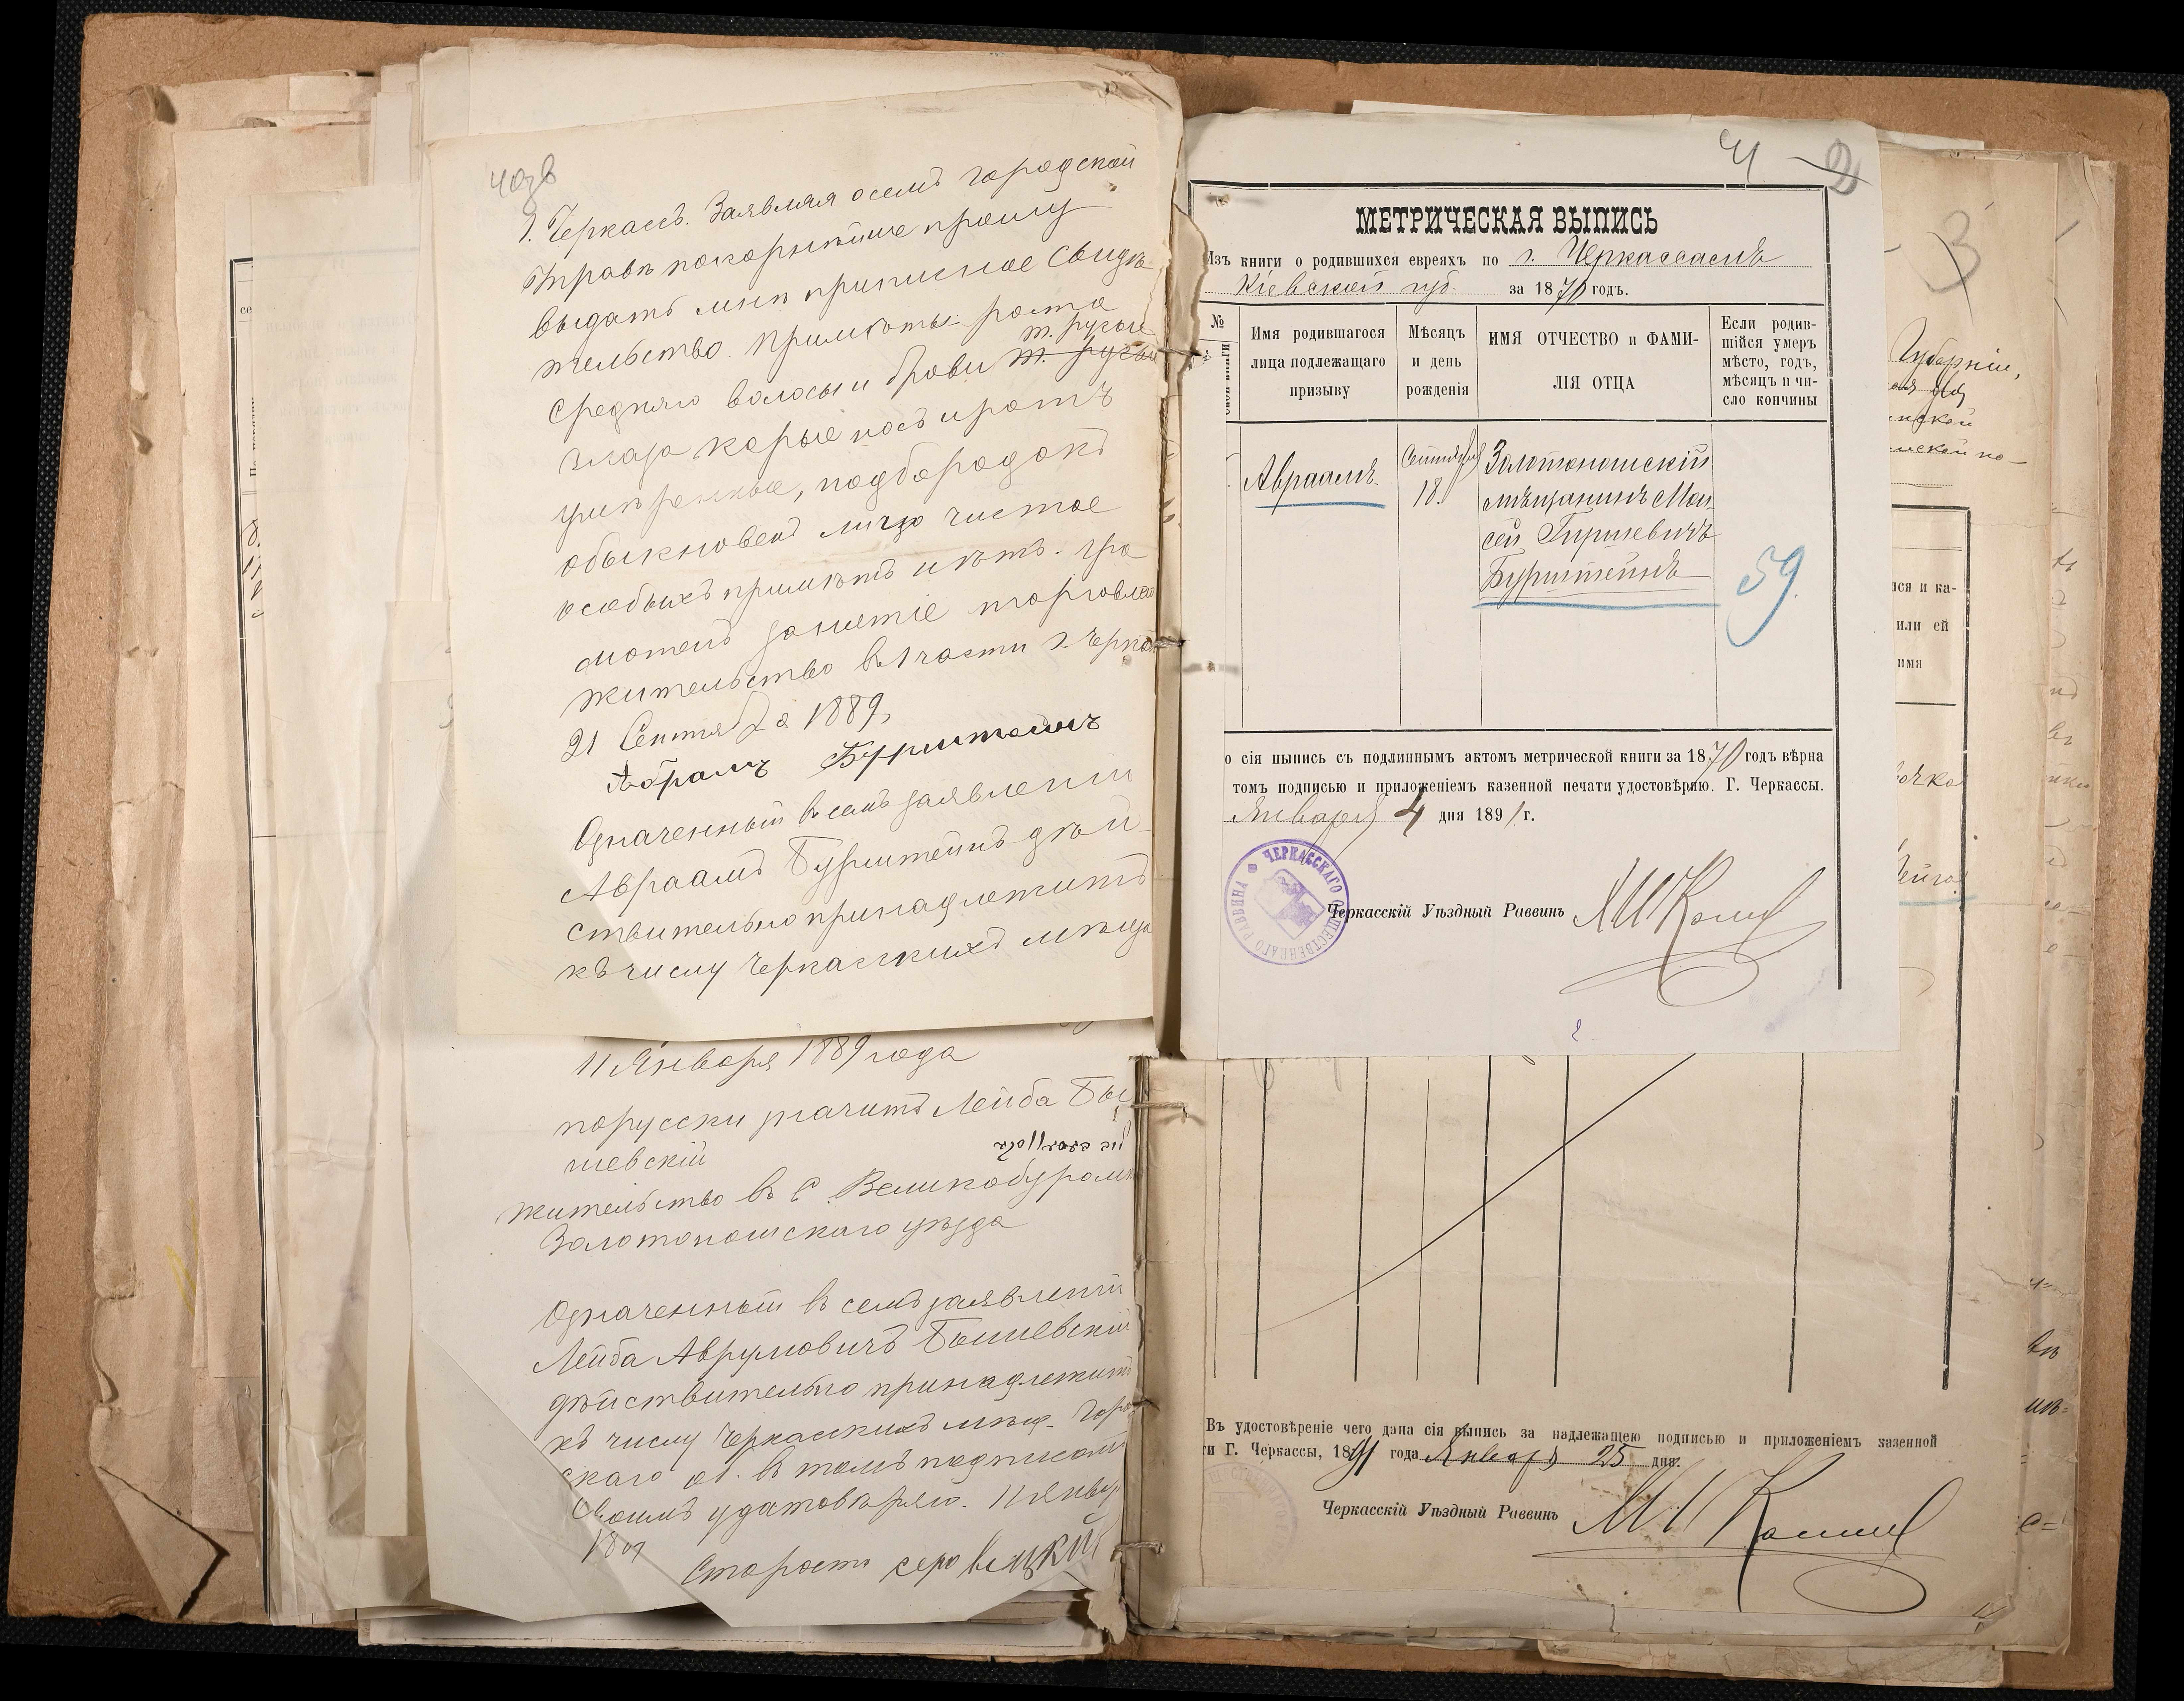 г. Черкассъ. Заявляя о семъ городской
Управѣ покорнѣйше прошу
выдать мнѣ приписное свидѣ
тельство. Примѣты: роста
т. русые
средняго волосы и брови т. русые
глаза карые носъ и ротъ
умѣренные, подбородокъ
обыкновен лицо чистое
особыхъ примѣтъ нѣтъ. гра
мотенъ занятіе торговлею
жительство въ 1 части г Черкас
21 Сентября 1889
Абрамъ Бурштейнъ
Означенный въ семъ заявленіи
Авраамъ Бурштейнъ дѣй
ствительно принадлежитъ
къ числу Черкасскихъ мѣща
11 Января 1889 года
порусски значитъ Лейба Бы
шевскій
жительство въ с. Великобуром
Золотоношскаго уѣзда
Означенный въ семъ заявленіи
Лейба Аврумовичъ Бышевскій
дѣйствительно принадлежитъ
къ числу Черкасскихъ мѣщ. Горо
скаго об. въ томъ подписом
своимъ удостовѣряю. 11 Янвр
1889
Староста
2
МЕТРИЧЕСКАЯ ВЫПИСЬ
Изъ книги о родившихся евреяхъ по г. Черкассамъ
Кіевской губ. за 1870 годъ.
№
Имя родившагося лица подлежащаго призыву
Мѣсяцъ и день рожденія
ИМЯ ОТЧЕСТВО и ФАМИ-
ЛІЯ ОТЦА
Если родив-
шійся умеръ
мѣсто, годъ,
мѣсяцъ и чи-
сло кончины
Авраамъ.
Сентября
18.
Золотоношскій
мѣщанинъ Мой
сей Гиршевичъ
Бурштейнъ
59.
о сія выпись съ подлиннымъ актомъ метрической книги за 1870 годъ вѣрна
томъ подписью и приложеніемъ казенной печати удостовѣряю. Г. Черкассы.
Января 4 дня 1891 г.
ЧЕРКАССКАГО ОБЩЕСТВЕННАГО РАВВИНА
Черкасскій Уѣздный Раввинъ
3
Губерніи,
ся и ка-
или ей
имя
Въ удостовѣреніе чего дана сія выпись за надлежащею подписью и приложеніемъ казенной
и Г. Черкассы, 1891 года Января 25 дня.
Черкасскій Уѣздный Раввинъ